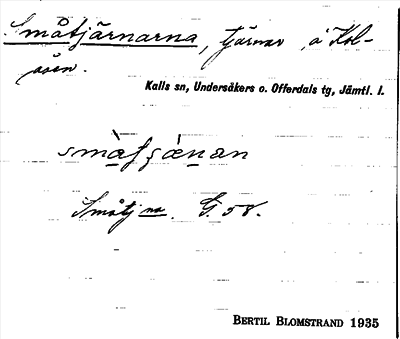 Småtjärnarna, tjärnar å Kol-
åsen.
Kalls sn, Undersåkers o. Offerdals tg, Jämtl. l.
Småtjna. G. 58.
BERTIL BLOMSTRAND 1935